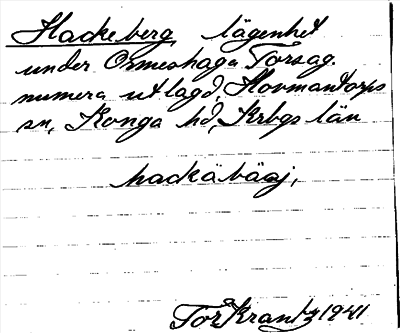 Hackeberg, lägenhet
under Ormeshaga Torsåg.
numera utlagd, Hovmantorps
sn, Konga hd, Krbgs län
hackäbäaj,
Tor Krantz 1941